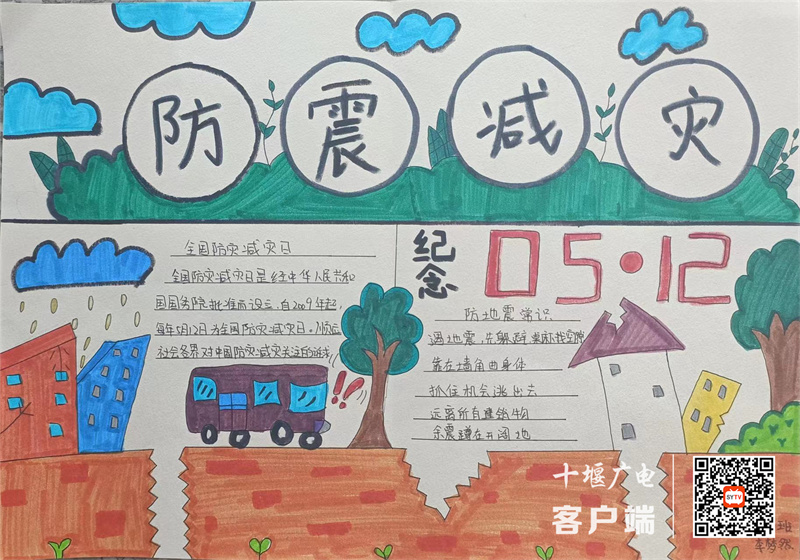 防震减灾
纪念
05·12
全国防灾减灾日
全国防灾减灾日是经中华人民共和
国国务院批准而设立,自2009年起,
每年5月12日为全国防灾减灾日。
社会各界对中国防灾减灾关注的
防地震常识
遇地震,先躲避
靠在墙角曲身体
抓住机会逃出去
远离所有建筑物
余震蹲在开阔地
十堰广电
客户端
SYTV
班